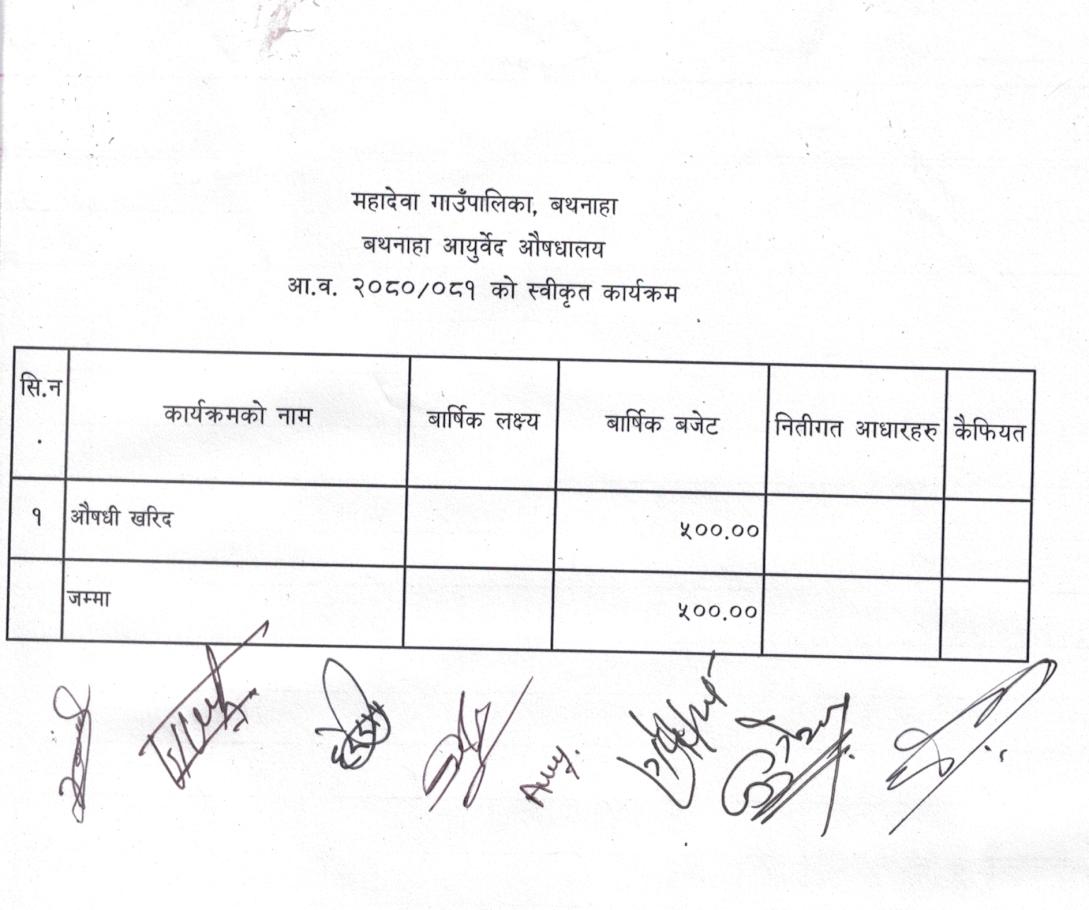 महादेवा गाउँपालिका, बथनाहा
बथनाहा आयुर्वेद औषधालय
आ.व. २०८०/०८१ को स्वीकृत कार्यक्रम
सि.न. कार्यक्रमको नाम बार्षिक लक्ष्य बार्षिक बजेट नितीगत आधारहरु कैफियत
१ औषधी खरिद ५००.००
जम्मा ५००.००